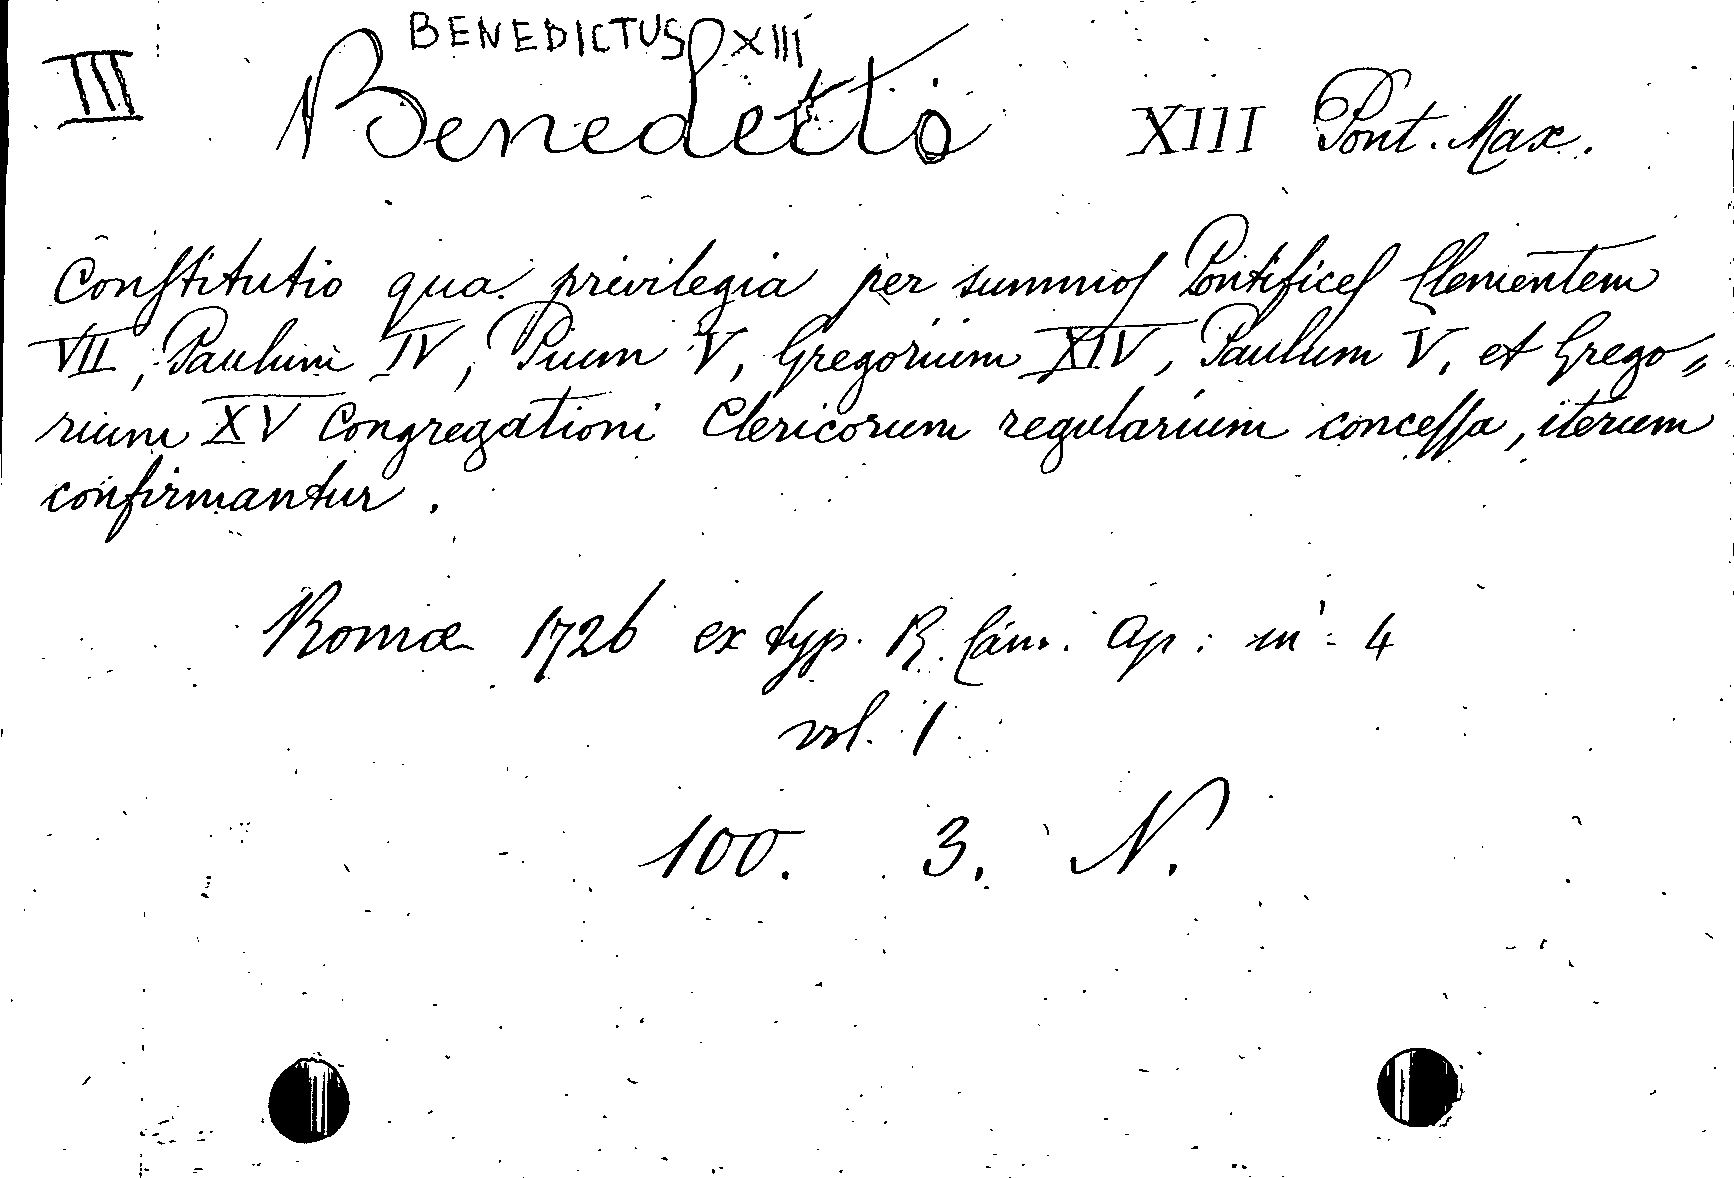 BENEDICTUS XIII
III Benedetto XIII Pont. Max.
Conſtitutio qua privilegia per summoſ Pontificeſ Clementem
VII, Paulum IV, Pium V, Gregorium XIV, Paulum V, et Grego„
rium XV Congregationi Clericorum regularium conceſſa, iterum
confirmantur.
Romæ 1726 ex typ. R. Cam. Ap: in 4
vol. 1
100. 3. N.